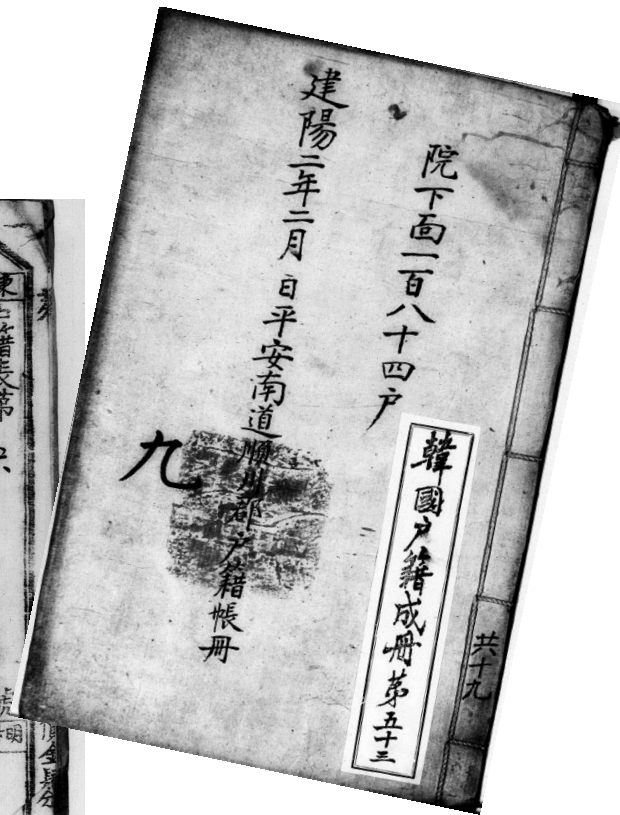 院下面一百八十四户
建陽二年二月 日平安南道順川郡户籍帳冊
九
韓國户籍成冊第五十三
共十九